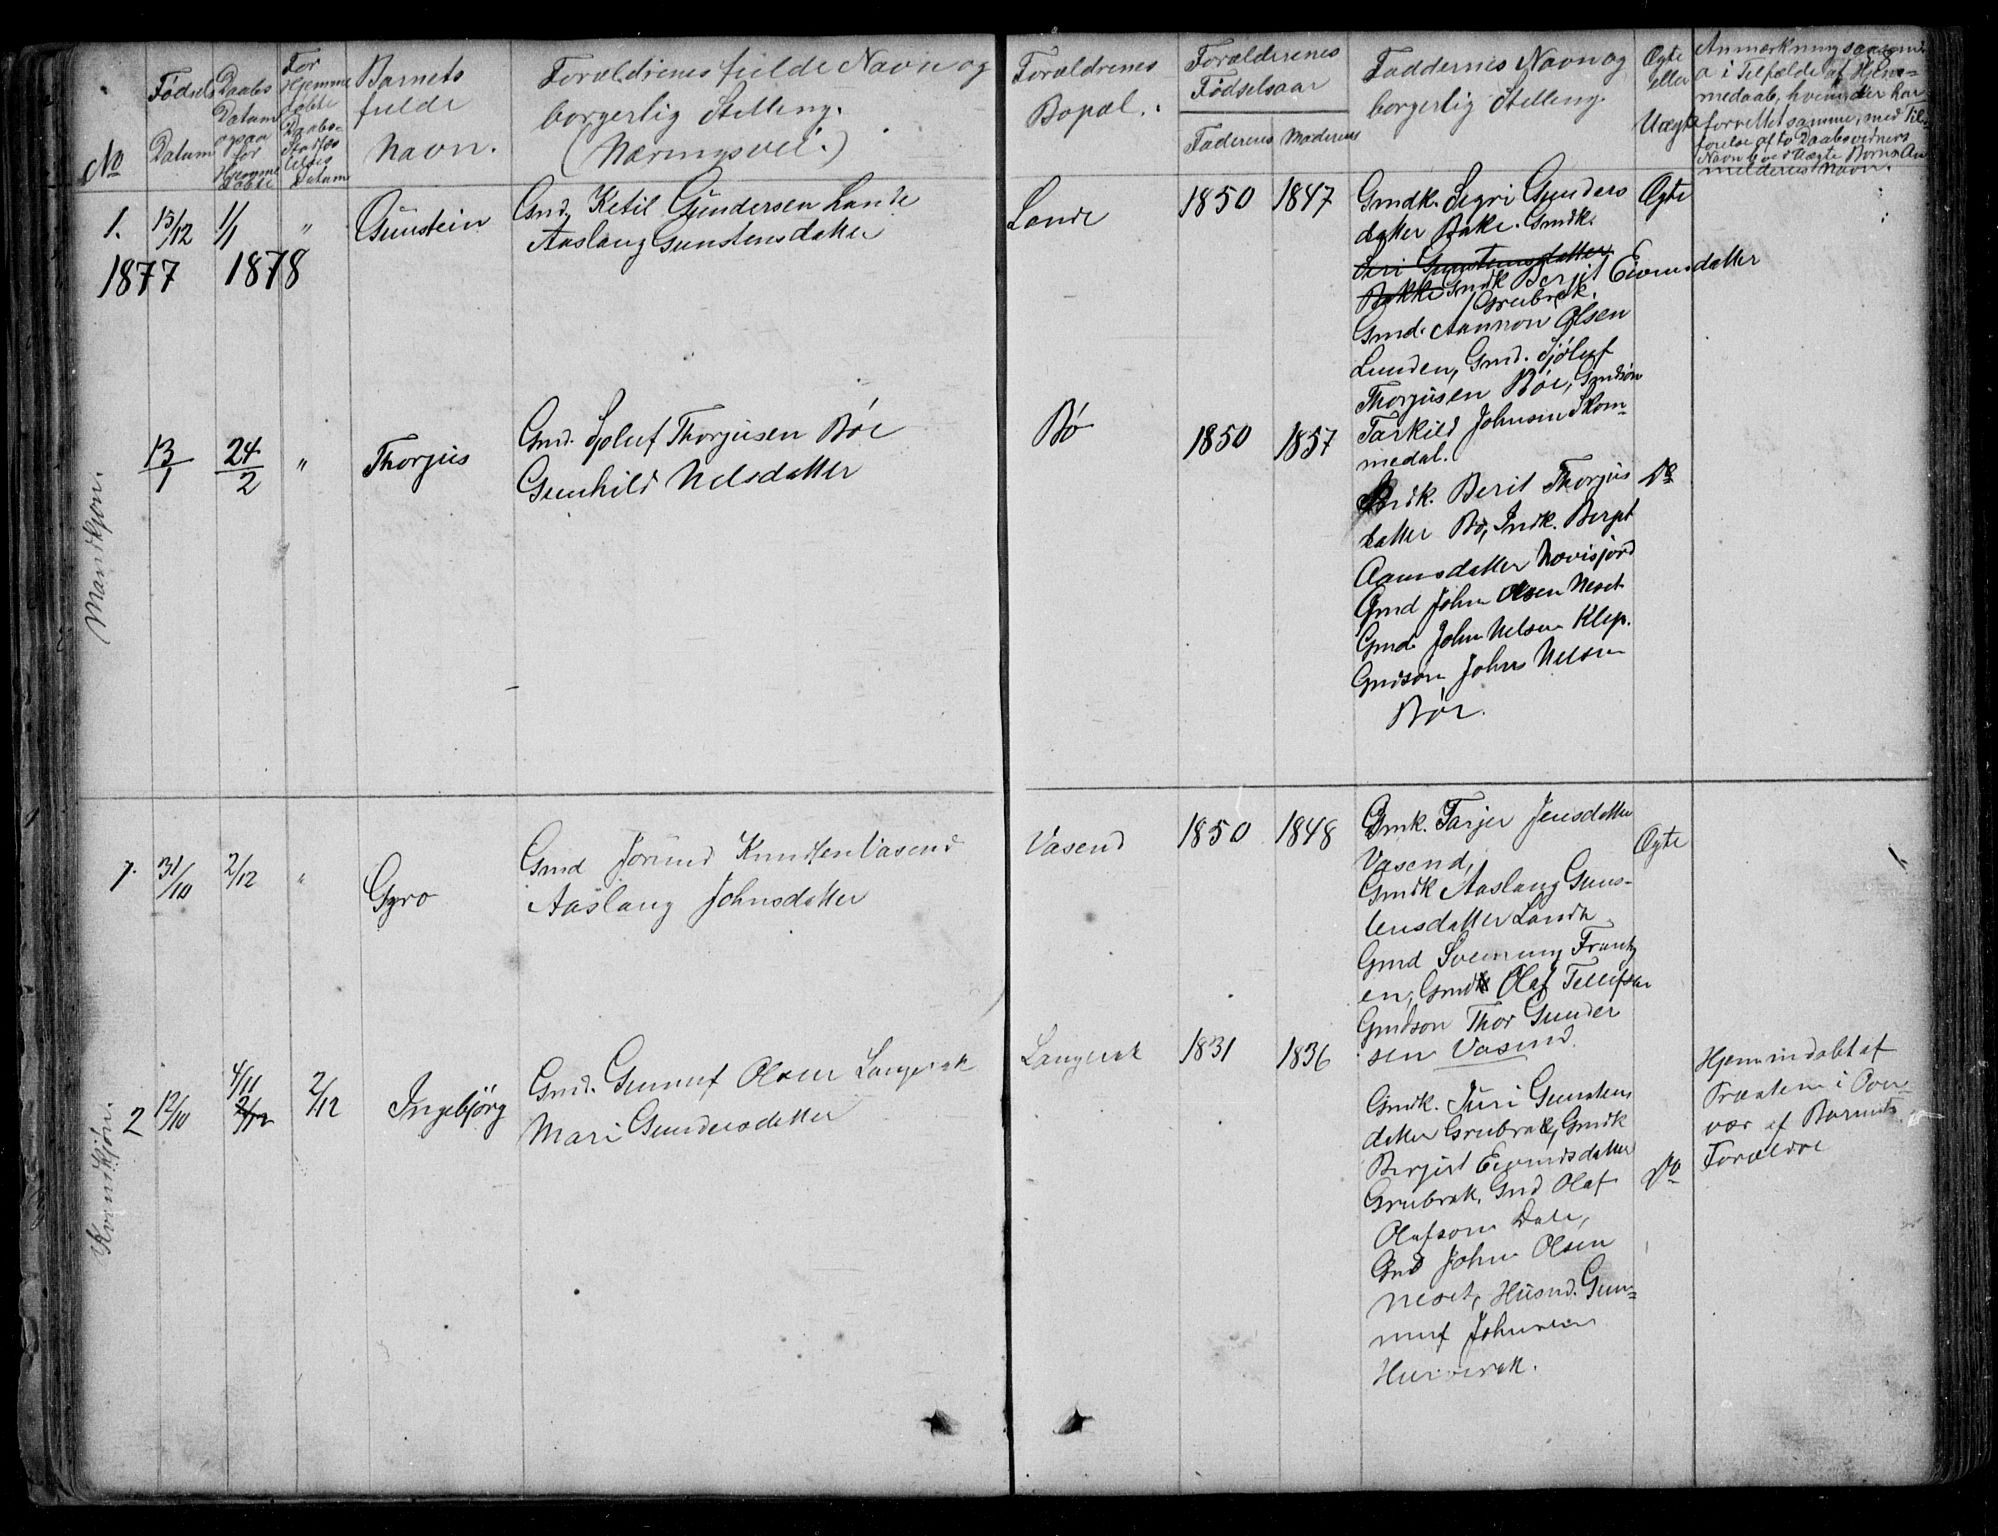 No
Fødsels Datum
Daabs Datum ogsaa for Hjemme døbte
For Hjemme døbte Daabs- Stadfæs telses Datum
Barnets fulde Navn.
Forældrenes fulde Navn og
borgerlig Stilling.
(Næringsvei.)
Forældrenes
Bopæl.
Forælderenes
Fødselsaar
Faderens Moderens
Faddernes Navn og
borgerlig Stilling.
Ægte
eller
Uægte
Anmærkning saasom
a i Tilfælde af Hjem-
medaab, hvem der har
forrettet samme, med Til-
førelse af to Daabsvidners
Navn b ved Uægte Børns An
melderens Navn.
Mandkjøn.
1. 13/12 1/1 "
1877 1878
Gunstein
Gmd. Ketil Gundersen Lande
Aaslaug Gunstensdatter
Lande
1850 1847
Gmdk. Sigri Gunders
datter Bakke. Gmdk.
Siri Gunstensdatter
Bakke Gmdk Bergit Eivindsdatter
Grubrok.
Gmd. Aanon Olsen
Lunden, Gmd. Sjøluf
Thorjusen Bøe, Gmdsøn
Tarkild Johnsen Skom-
medal.
Ægte
13/1 24/2 "
Thorjus
Gmd. Sjøluf Thorjusen Bøe
Gunhild Nelsdatter
Bø
1850 1857
Gmdk. Berit Thorjus
datter Bø, Indk. Bergit
Aanunsdatter Nævisjord
Gmd John Olsen Neset
Gmd. John Nelsen Klep.
Gmdsøn Johns Nelsen
Bøe.
Do
Kvindekjøn.
1. 31/10 2/12 "
Gyro
Gmd Jorund Knudsen Vasend
Aaslaug Johnsdatter
Vasend
1850 1848
Gmk. Tarjer Jensdatter
Vasend,
Gmdk Aaslaug Guns-
tensdatter Lande
Gmd Svenung Frantz
en, Gmd Olaf Tellefsen
Gmdson Thor Gunder
sen Vasend.
Ægte
2 12/10 4/11 2/12 2/12
Ingebjörg
Gmd. Gunuf Olsen Langerak
Mari Gundersdatter
Langerak
1831 1836
Gmdk. Juri Gunstens
datter Grubrok, Gmdk
Bergit Eivindsdatter
Grubrok. Gmd Olaf
Olafson Dale,
Gmd John Olsen
Neset, Husmd. Gun-
nuf Johnsen
Do
Hjemmedøbt af
Præsten i Over-
vær af Barnets
Forældre